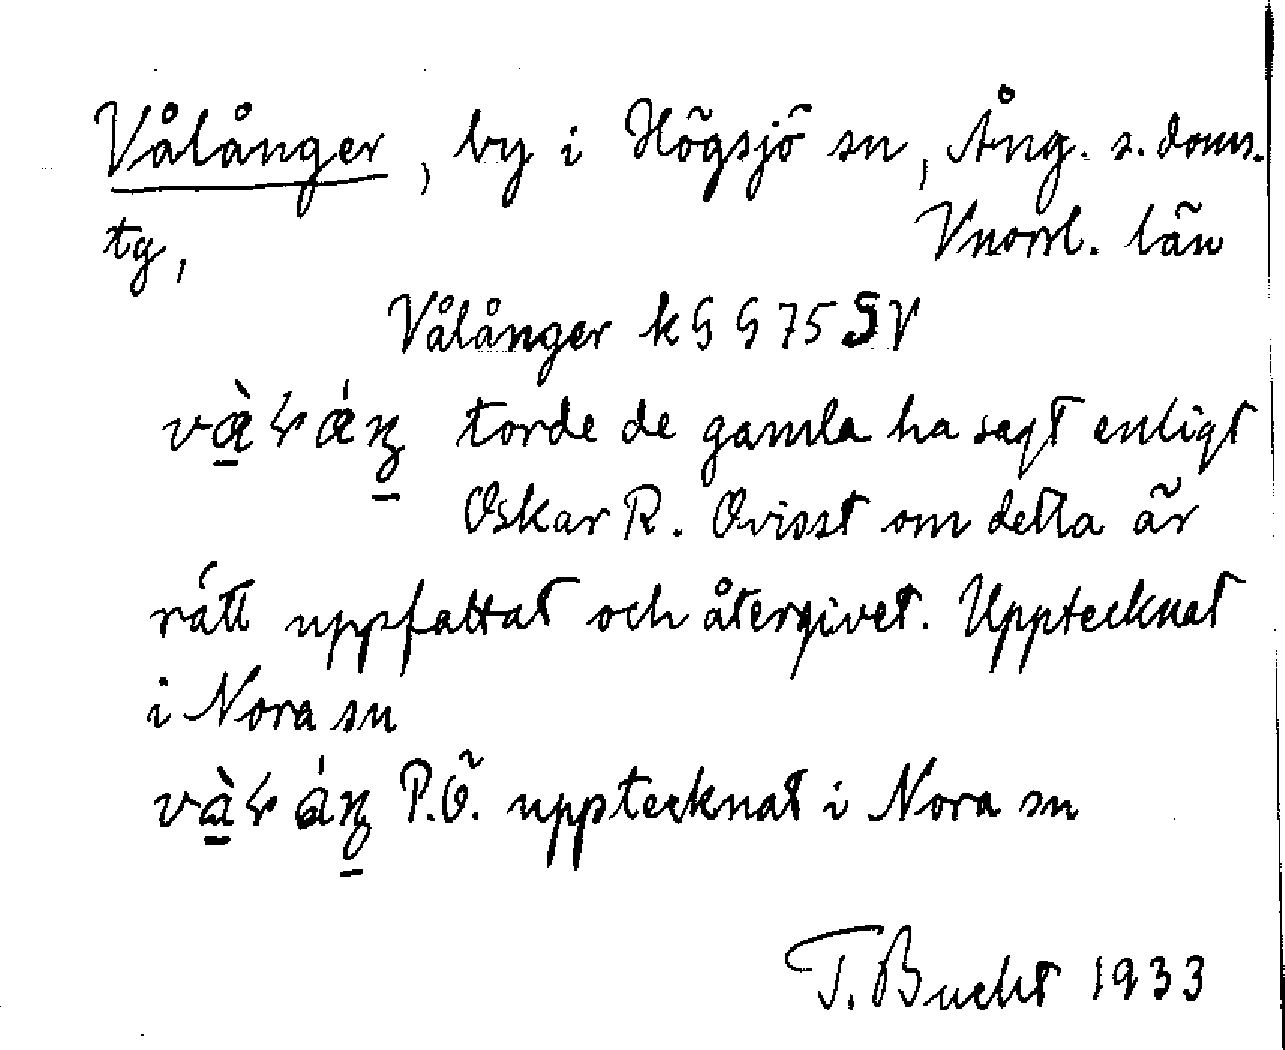 Vålånger, by i Högsjö sn, Ång. s. doms.
tg, Vnorrl. län
Vålånger k G G 75 SV
torde de gamla ha sagt enligt
Oskar R. Ovisst om detta är
rätt uppfattat och återgivet. Upptecknat
i Nora sn
P.Ö. upptecknat i Nora sn
T. Bucht 1933